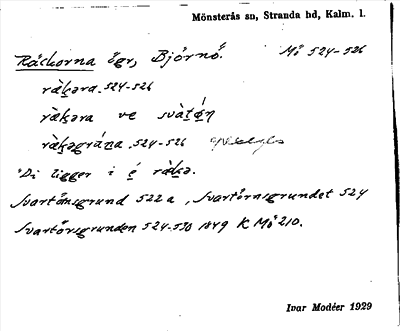 Mönsterås sn, Stranda hd, Kalm. l.
Räckorna ögr, Björnö. Mö 524-526
ràkəra 524-526
ràkəra ve svàtǻn
ràkəgrúna 524-526
"Di ligger i e ràkə.
Svartönsgrund 522a, Svartörnsgrundet 524
Svartörsgrunden 524-530 1849 K Mö 210.
Ivar Modéer 1929